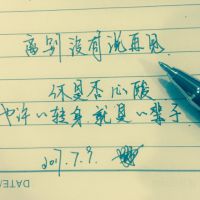 离别没有说再见
你是否心酸
也许一转身就是一辈子
2017.7.9.
DATE